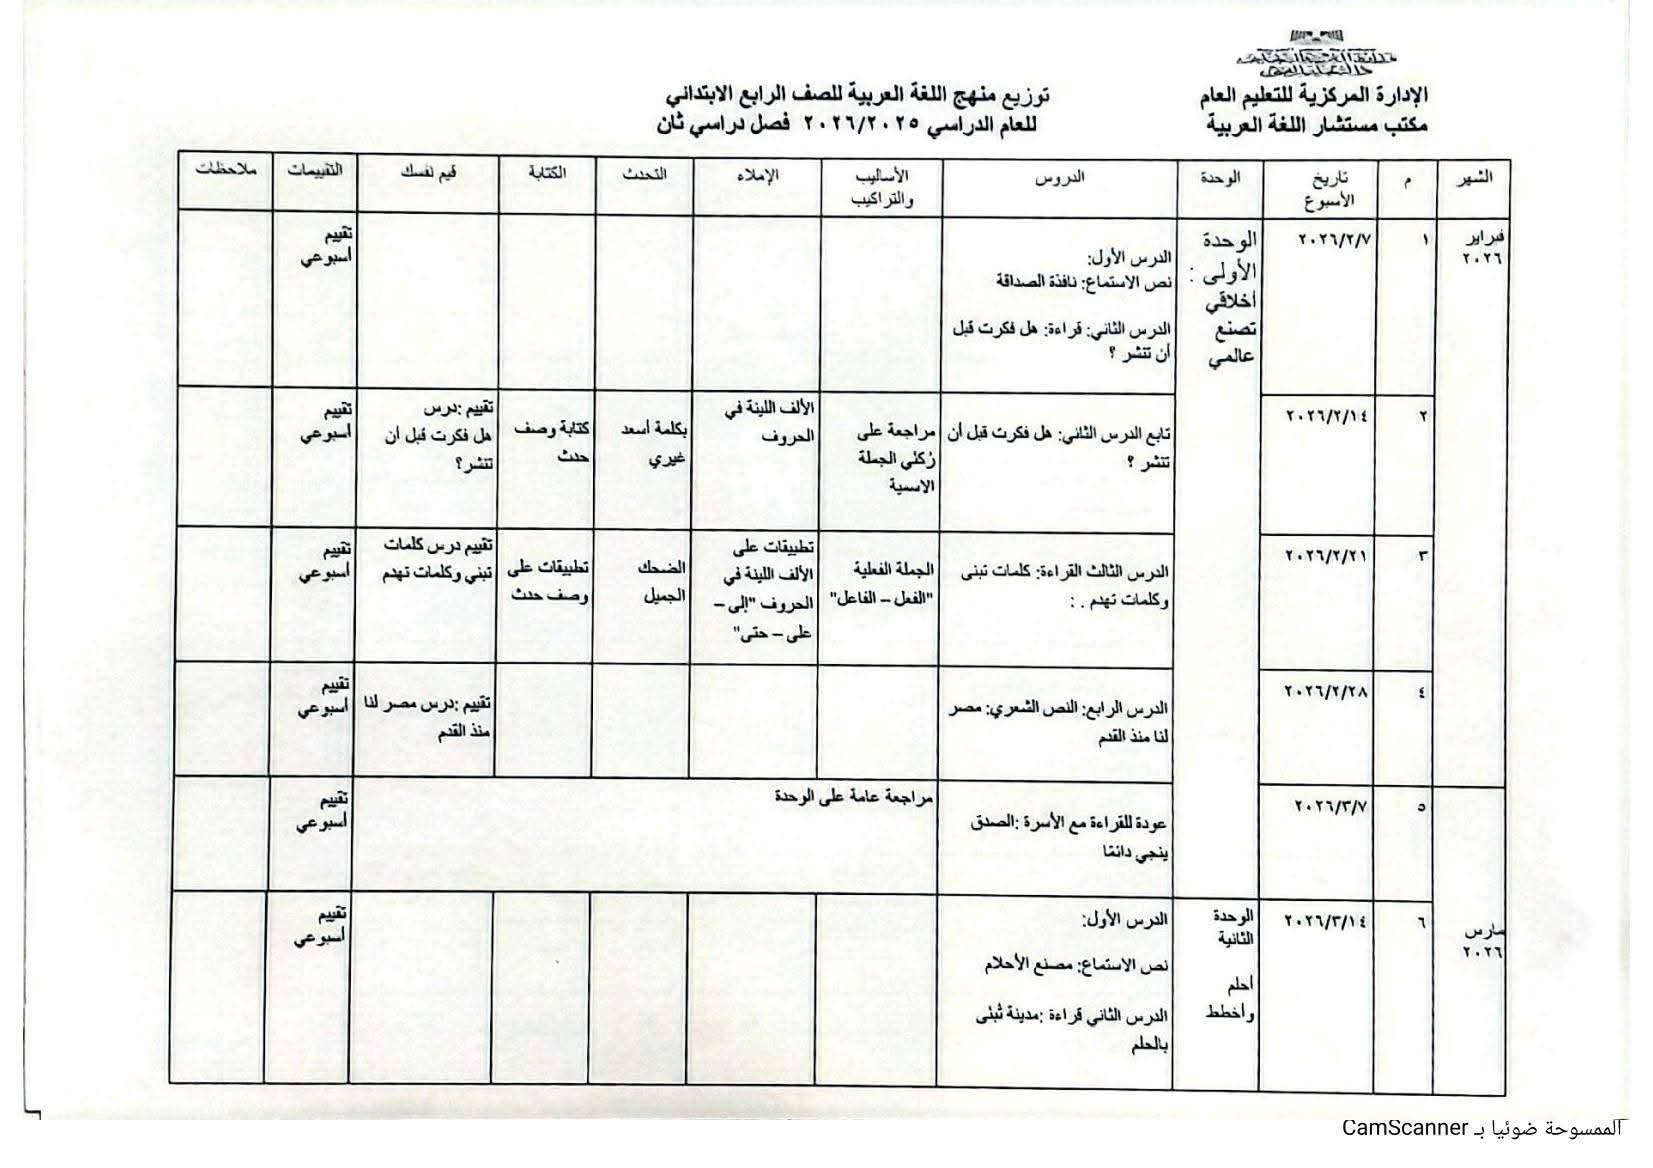 الإدارة المركزية للتعليم العام
مكتب مستشار اللغة العربية
توزيع منهج اللغة العربية للصف الرابع الابتدائي
للعام الدراسي ٢٠٢٦/٢٠٢٥ فصل دراسي ثان
الشهر
م
تاريخ
الأسبوع
الوحدة
الدروس
الأساليب
والتراكيب
الإملاء
التحدث
الكتابة
قيم نفسك
التقييمات
ملاحظات
فبراير
٢٠٢٦
١
٢٠٢٦/٢/٧
الوحدة
الأولى :
أخلاقي
تصنع
عالمي
الدرس الأول:
نص الاستماع: نافذة الصداقة
الدرس الثاني: قراءة: هل فكرت قبل
أن تنشر ؟
تقييم
أسبوعي
٢
٢٠٢٦/٢/١٤
تابع الدرس الثاني: هل فكرت قبل أن
تنشر ؟
مراجعة على
رُكني الجملة
الاسمية
الألف اللينة في
الحروف
بكلمة أسعد
غيري
كتابة وصف
حدث
تقييم :درس
هل فكرت قبل أن
تنشر؟
تقييم
أسبوعي
٣
٢٠٢٦/٢/٢١
الدرس الثالث القراءة: كلمات تبنى
وكلمات تهدم . :
الجملة الفعلية
"الفعل – الفاعل"
تطبيقات على
الألف اللينة في
الحروف "إلى –
على – حتى"
الضحك
الجميل
تطبيقات على
وصف حدث
تقييم درس كلمات
تبني وكلمات تهدم
تقييم
أسبوعي
٤
٢٠٢٦/٢/٢٨
الدرس الرابع: النص الشعري: مصر
لنا منذ القدم
تقييم :درس مصر لنا
منذ القدم
تقييم
أسبوعي
مارس
٢٠٢٦
٥
٢٠٢٦/٣/٧
عودة للقراءة مع الأسرة :الصدق
ينجي دائمًا
مراجعة عامة على الوحدة
تقييم
أسبوعي
٦
٢٠٢٦/٣/١٤
الوحدة
الثانية
أحلم
وأخطط
الدرس الأول:
نص الاستماع: مصنع الأحلام
الدرس الثاني قراءة :مدينة تُبنى
بالحلم
تقييم
أسبوعي
الممسوحة ضوئيا بـ CamScanner